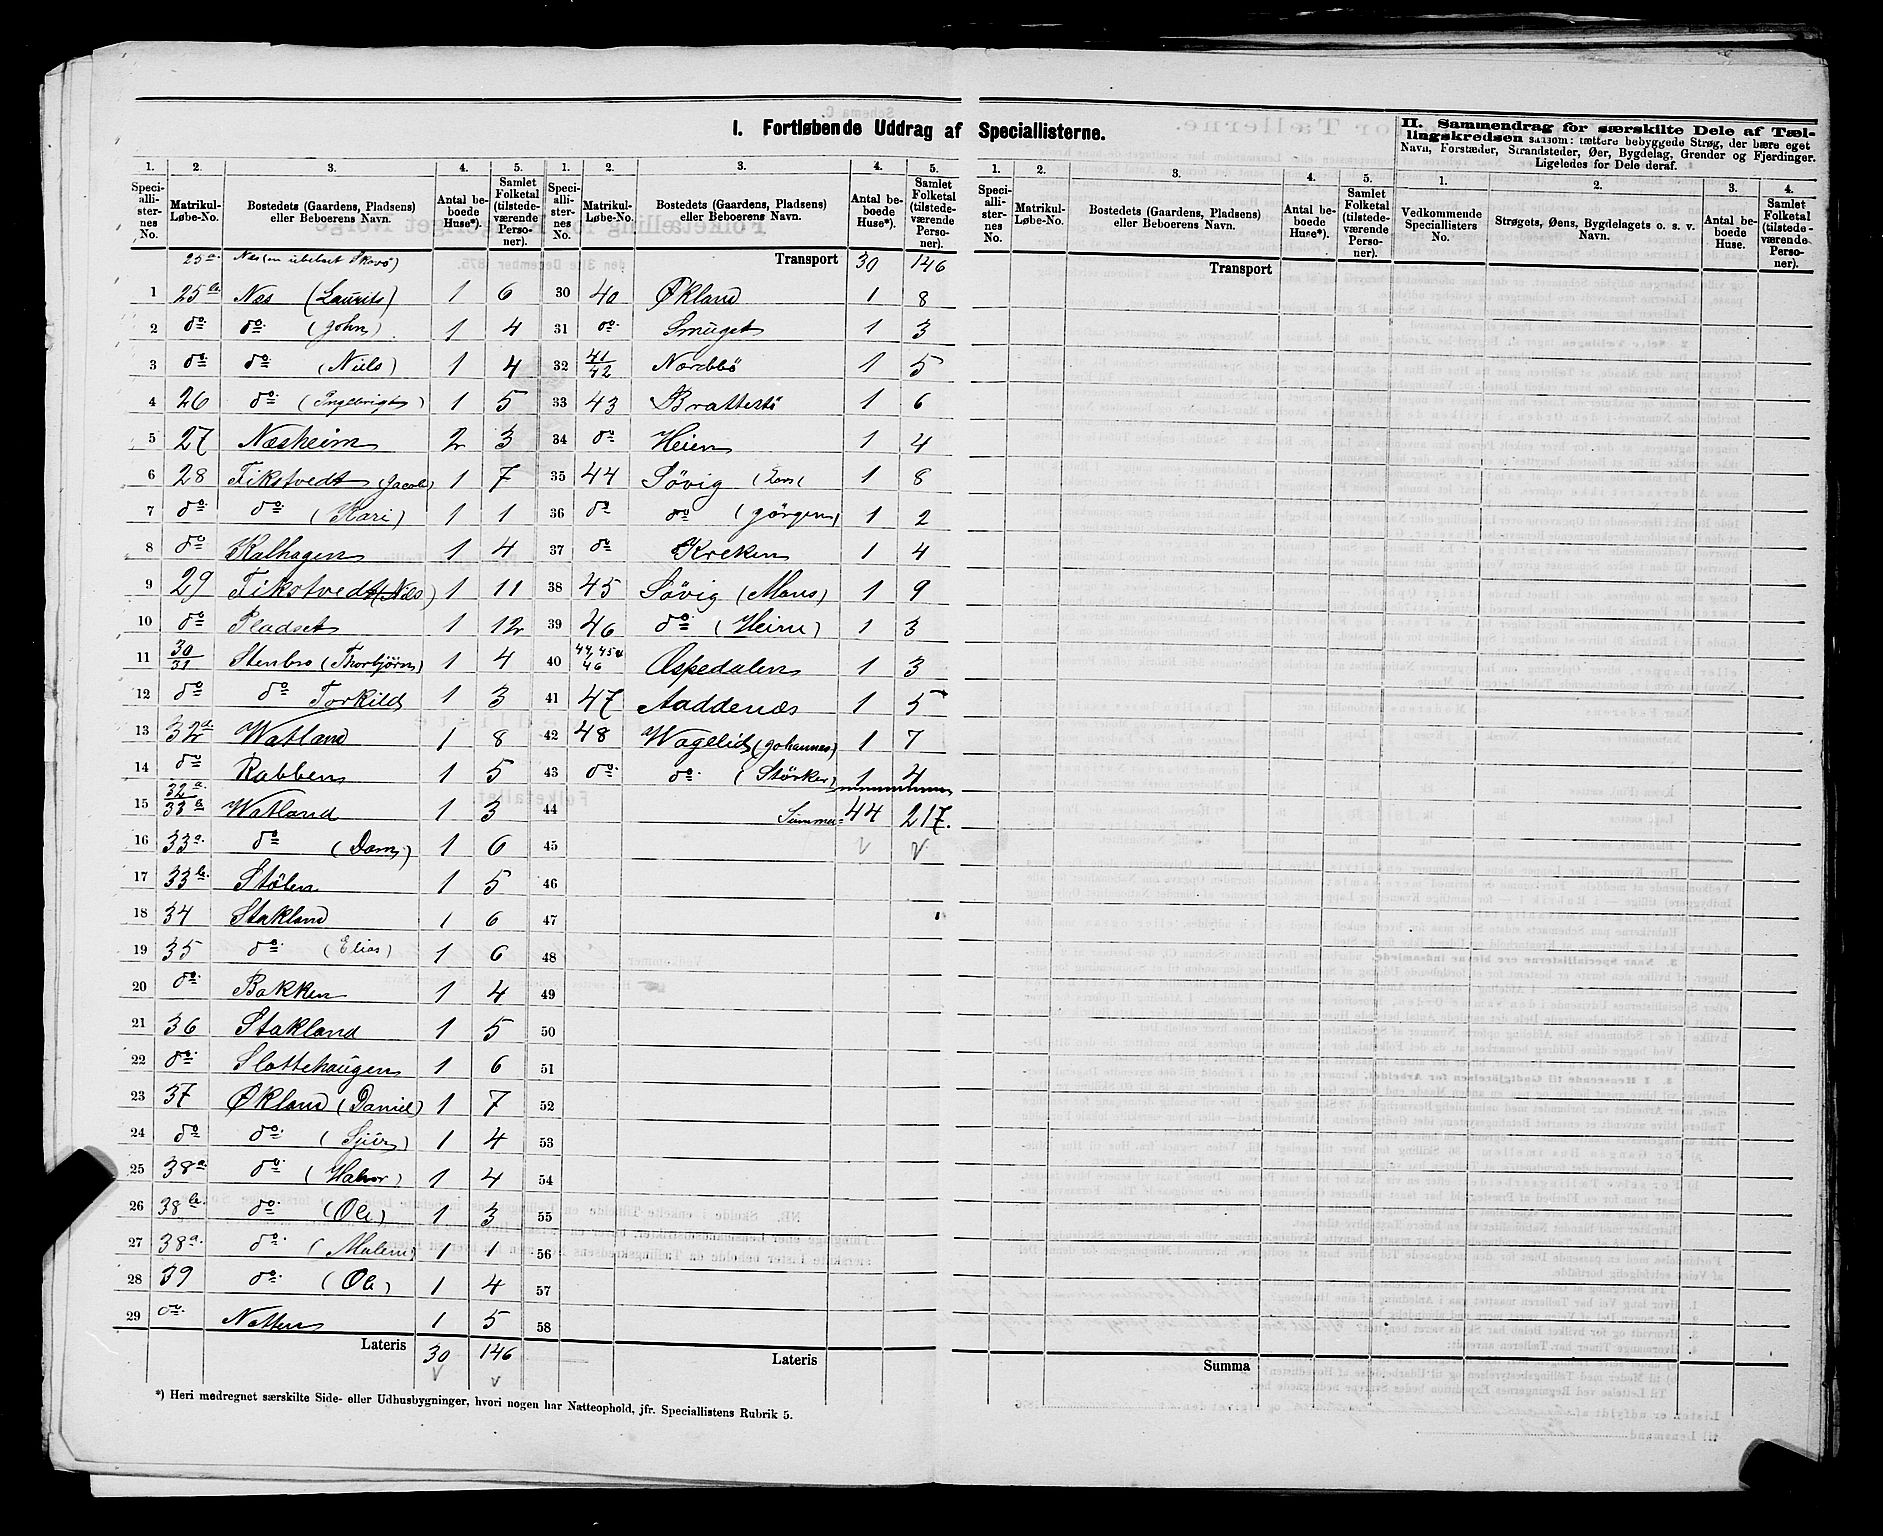 I. Fortløbende Uddrag af Speciallisterne.
II. Sammendrag for særskilte Dele af Tæl-
lingskredsen saasom: tættere bebyggede Strøg, der bære eget
Navn, Forstæder, Strandsteder, Øer, Bygdelag, Grender og Fjerdinger.
Ligeledes for Dele deraf.
1. 2. 3. 4. 5. 1. 2. 3. 4. 5. 1. 2. 3. 4. 5. 1. 2. 3. 4.
Speciallisternes No. Matrikul-Løbe-No. Bostedets (Gaardens, Pladsens) eller Beboerens Navn. Antal beboede Huse*). Samlet Folketal (tilstedeværende Personer).
Speciallisternes No. Matrikul-Løbe-No. Bostedets (Gaardens, Pladsens) eller Beboerens Navn. Antal beboede Huse*). Samlet Folketal (tilstedeværende Personer).
Speciallisternes No. Matrikul-Løbe-No. Bostedets (Gaardens, Pladsens) eller Beboerens Navn. Antal beboede Huse*). Samlet Folketal (tilstedeværende Personer).
Vedkommende Speciallisters No. Strøgets, Øens, Bygdelagets o. s. v. Navn. Antal beboede Huse. Samlet Folketal (tilstedeværende Personer).
25a. Næs
1 25b. Næs (Laurits) 1 6
2 do do (John) 1 4
3 do do (Niels) 1 4
4 26 do (Ingebrigt) 1 5
5 27 Næsheim 2 3
6 28 Tikstvedt (Jacob) 1 7
7 do do (Kari) 1 1
8 do Kalhagen 1 4
9 29 Tikstvedt (Nils) 1 11
10 do Pladset 1 12
11 30/31 Stenbro (Thorbjørn) 1 4
12 do do Torkild 1 3
13 32a Watland 1 8
14 do Rabben 1 5
15 32a./33b Watland 1 3
16 33a. do (Dam) 1 6
17 33b. Stølen 1 5
18 34 Stakland 1 6
19 35 do (Elias) 1 6
20 do Bakken 1 4
21 36 Stakland 1 5
22 do Slottehaugen 1 6
23 37 Økland (Daniel) 1 7
24 do do (Sjur) 1 4
25 38a. do (Halvor) 1 4
26 38b. do (Ole) 1 3
27 38a. do (Malene) 1 1
28 39 do (Ole) 1 4
29 do Notten 1 5
Lateris 30 146
Transport 30 146
30 40 Økland 1 8
31 do Smuget 1 3
32 41/42 Nordbø 1 5
33 43 Brattestø 1 6
34 do Heien 1 4
35 44 Søvig (Lars) 1 8
36 do do (Jørgen) 1 2
37 do Kreken 1 4
38 45 Søvig (Mons) 1 9
39 46 do (Heine) 1 3
40 44, 45 & 46 Ospedalen 1 3
41 47 Aaddenæs 1 5
42 48 Wagelid (Johannes) 1 7
43 do do (Størker) 1 4
44 Summa= 44 217.
45
46
47
48
49
50
51
52
53
54
55
56
57
58
Lateris
Transport
Summa
*) Heri medregnet særskilte Side- eller Udhusbygninger, hvori nogen har Natteophold, jfr. Speciallistens Rubrik 5.